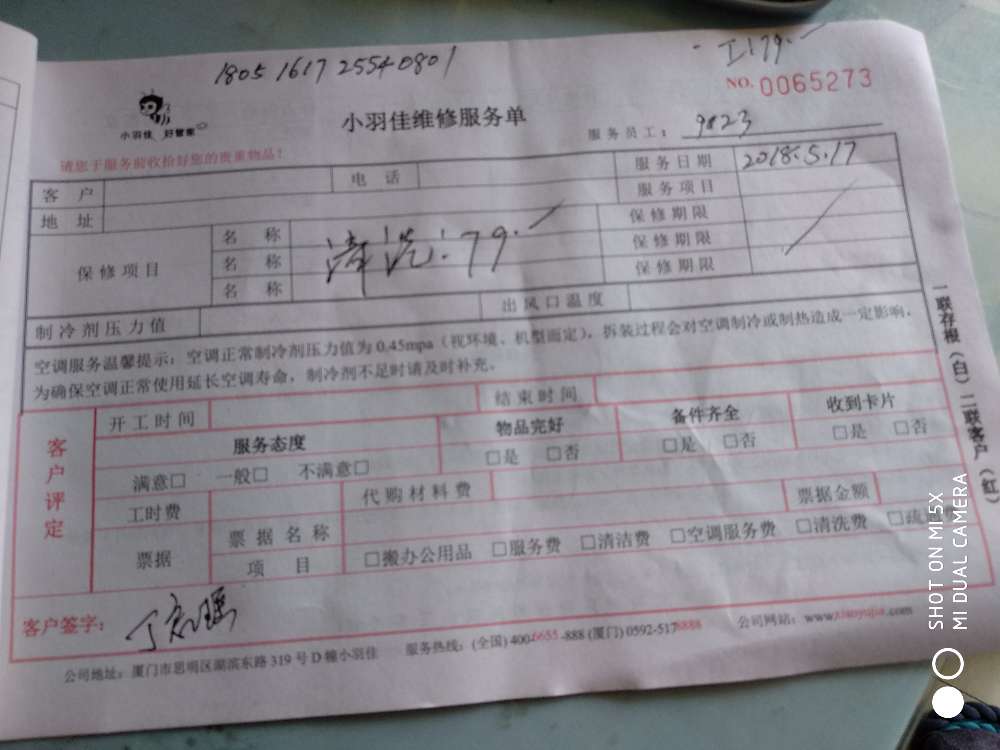 1805 1617 2554 0801
工179.-
NO.0065273
小羽佳 好管家
小羽佳维修服务单
服务员工: 9823
请您于服务前收拾好您的贵重物品!
客 户 电 话 服务日期 2018.5.17
地 址 服务项目
保修项目 名 称 清洗:79.- 保修期限
名 称 保修期限
名 称 保修期限
制冷剂压力值 出风口温度
空调服务温馨提示:空调正常制冷剂压力值为0.45mpa(视环境、机型而定),拆装过程会对空调制冷或制热造成一定影响,
为确保空调正常使用延长空调寿命,制冷剂不足时请及时补充。
客户评定
开工时间 结束时间
服务态度 物品完好 备件齐全 收到卡片
满意□ 一般□ 不满意□ □是 □否 □是 □否 □是 □否
工时费 代购材料费 票据金额
票据 票据名称
项 目 □搬办公用品 □服务费 □清洁费 □空调服务费 □清洗费 □疏
客户签字:
公司地址:厦门市思明区湖滨东路319号D幢小羽佳 服务热线:(全国)400-6655-888 (厦门)0592-5178888 公司网站:www.xiaoyujia.com
一联存根(白)二联客户(红)
SHOT ON MI 5X
MI DUAL CAMERA